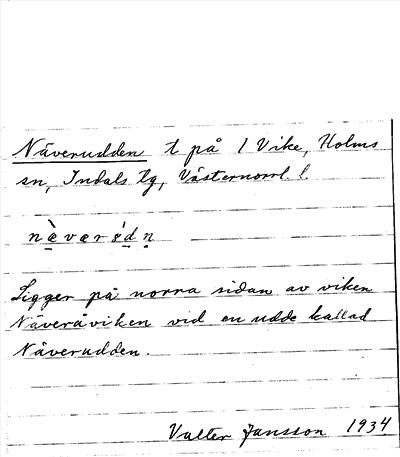 Näverudden t på 1 Vike, Holms
sn, Indals tg, Västernorrl. l.
Ligger på norra sidan av viken
Näveråviken vid en udde kallad
Näverudden.
Valter Jansson 1934